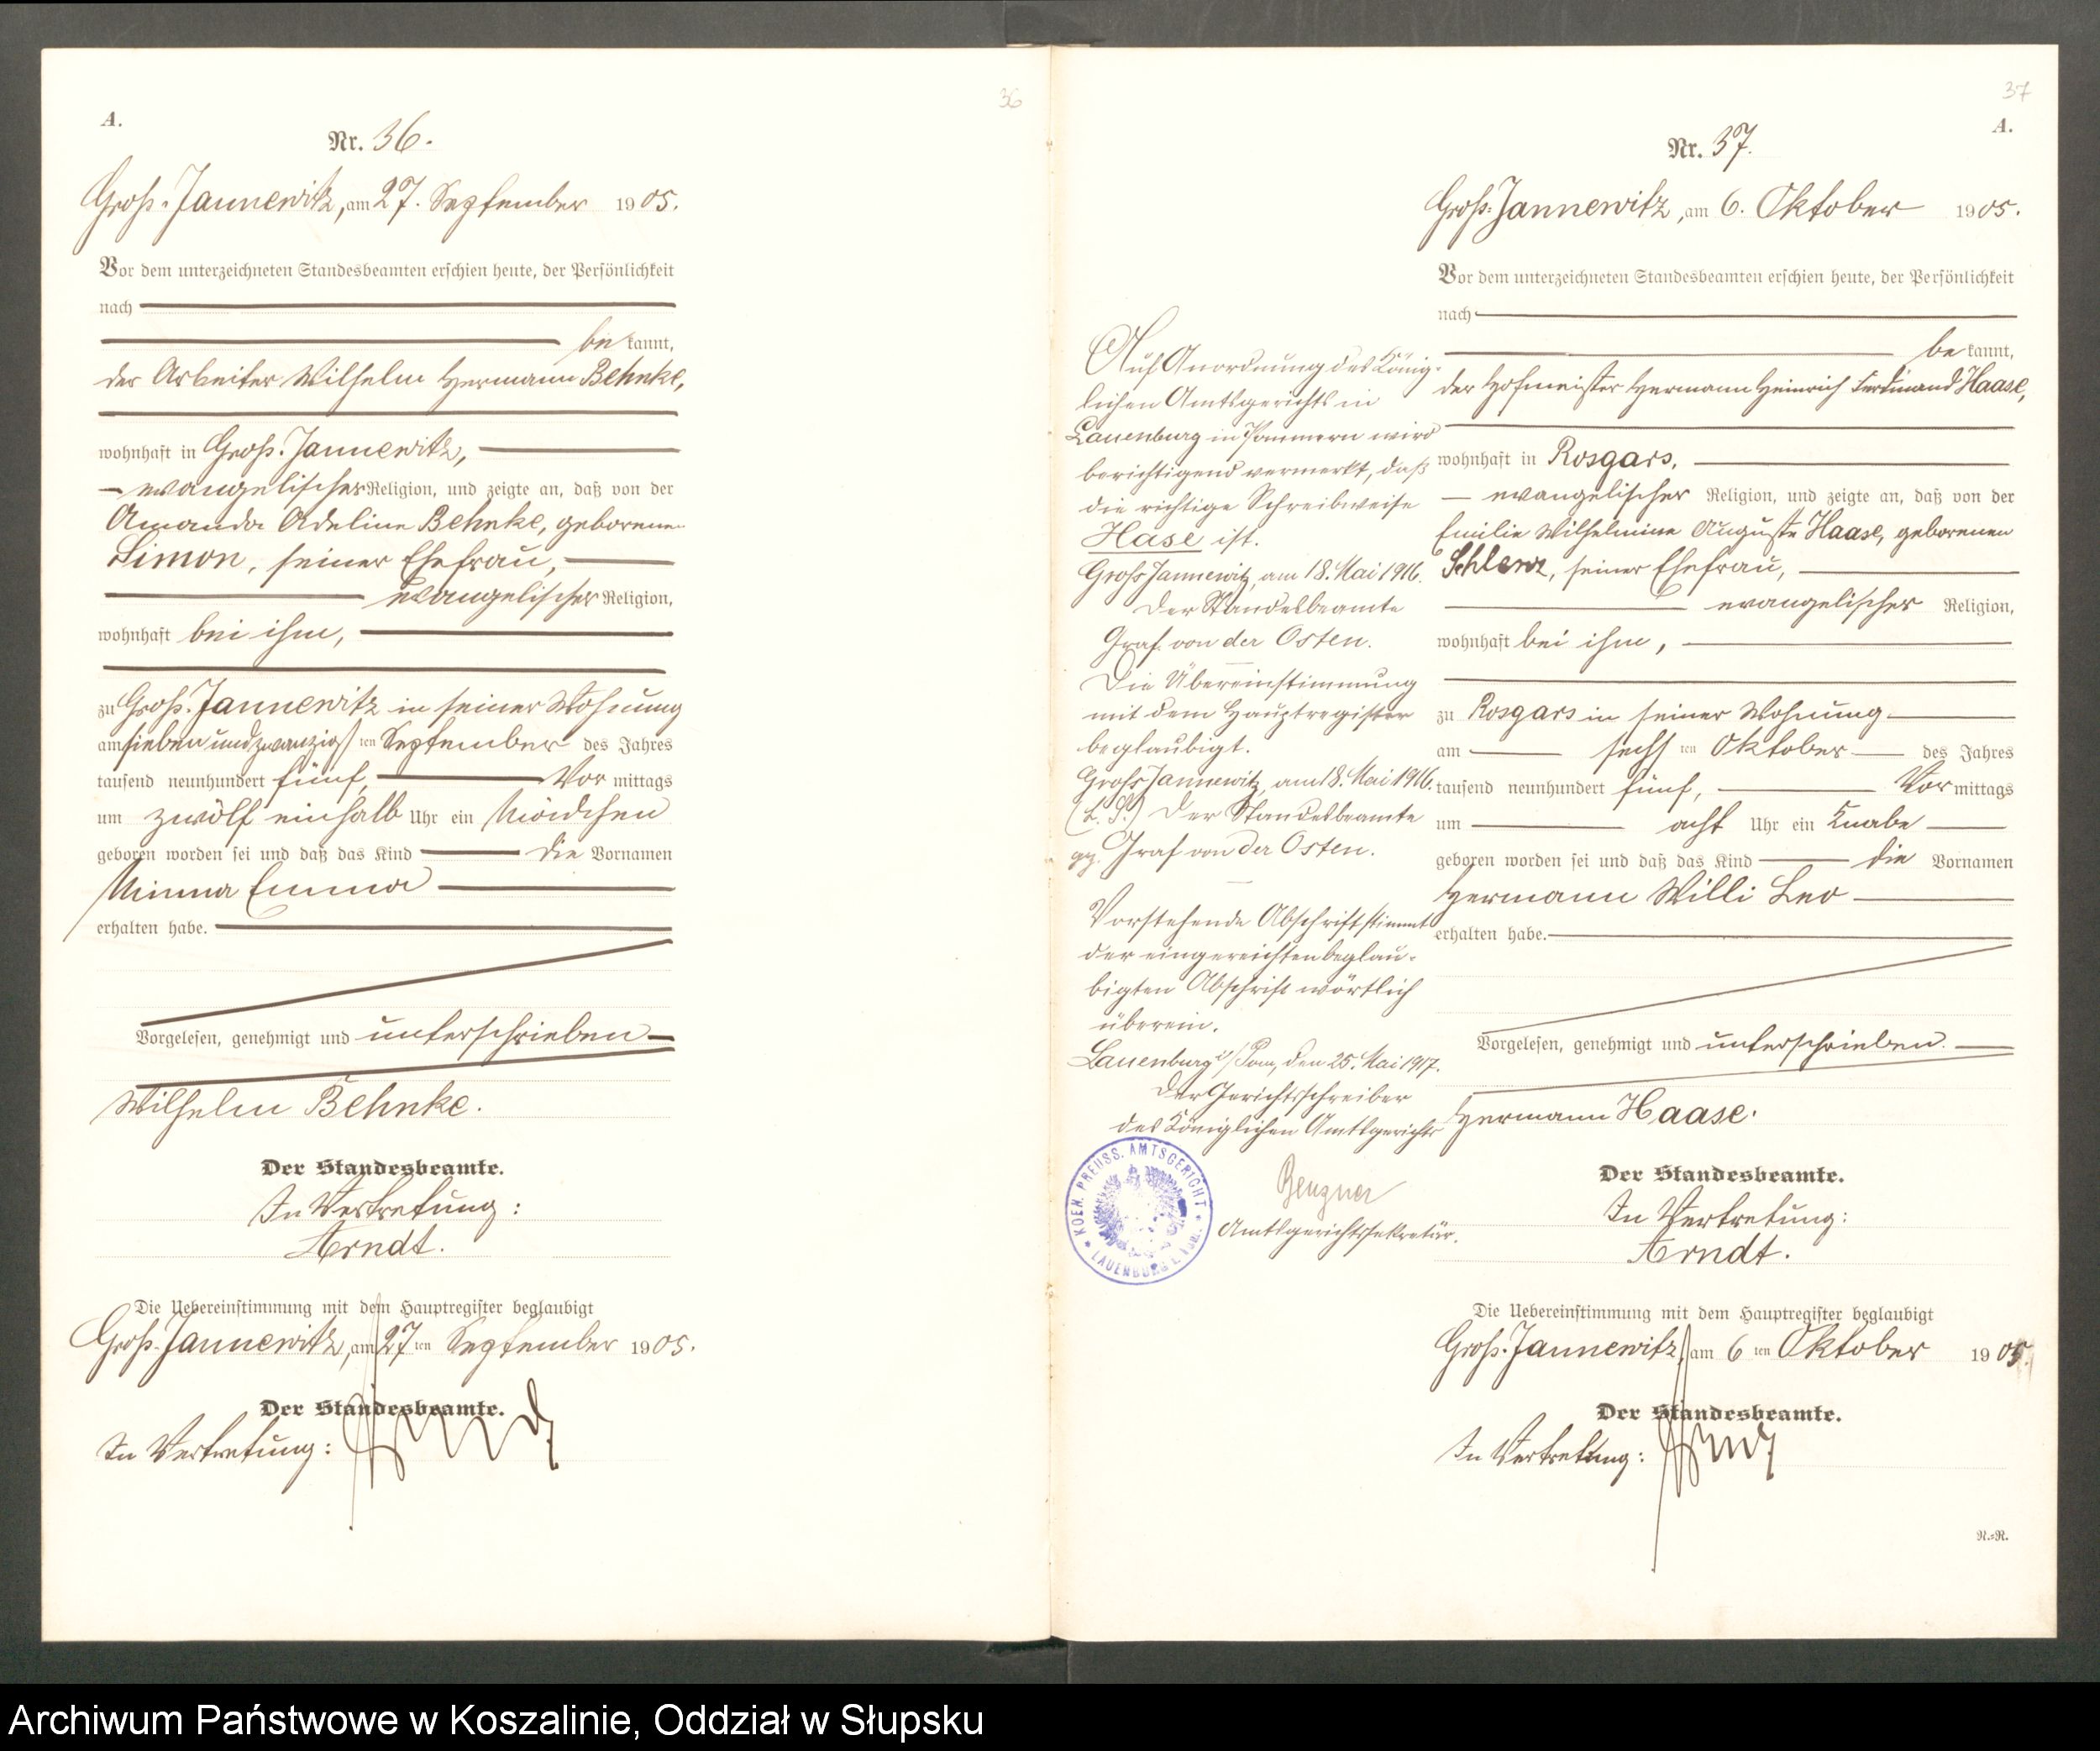 36
A.
Nr. 36.
Groß-Jannewitz, am 27. September 1905.
Vor dem unterzeichneten Standesbeamten erschien heute, der Persönlichkeit
nach
be kannt,
der Arbeiter Wilhelm Hermann Behnke,
wohnhaft in Groß-Jannewitz,
evangelischer Religion, und zeigte an, daß von der
Amanda Adeline Behnke, geborenen
Simon, seiner Ehefrau,
evangelischer Religion,
wohnhaft bei ihm,
zu Groß-Jannewitz in seiner Wohnung
am sieben und zwanzigsten September des Jahres
tausend neunhundert fünf, Vor mittags
um zwölf einhalb Uhr ein Mädchen
geboren worden sei und daß das Kind die Vornamen
Minna Emma
erhalten habe.
Vorgelesen, genehmigt und unterschrieben
Wilhelm Behnke.
Der Standesbeamte.
In Vertretung:
Arndt.
Die Uebereinstimmung mit dem Hauptregister beglaubigt
Groß-Jannewitz, am 27 ten September 1905.
Der Standesbeamte.
In Vertretung: Arndt
37
A.
Nr. 37.
Groß-Jannewitz, am 6. Oktober 1905.
Vor dem unterzeichneten Standesbeamten erschien heute, der Persönlichkeit
nach
be kannt,
der Hofmeister Hermann Heinrich Ferdinand Haase,
wohnhaft in Rosgars,
evangelischer Religion, und zeigte an, daß von der
Emilie Wilhelmine Auguste Haase, geborenen
seiner Ehefrau,
evangelischer Religion,
wohnhaft bei ihm,
zu Rosgars in seiner Wohnung
am sechsten Oktober des Jahres
tausend neunhundert fünf, Vor mittags
um acht Uhr ein Knabe
geboren worden sei und daß das Kind die Vornamen
Hermann Willi Leo
erhalten habe.
Vorgelesen, genehmigt und unterschrieben.
Hermann Haase.
Der Standesbeamte.
In Vertretung:
Arndt.
Die Uebereinstimmung mit dem Hauptregister beglaubigt
Groß-Jannewitz, am 6 ten Oktober 1905.
Der Standesbeamte.
In Vertretung: Arndt
R.=R.
Auf Anordnung des König-
lichen Amtsgerichts in
Lauenburg in Pommern wird
berichtigend vermerkt, daß
die richtige Schreibweise
Hase ist.
Groß Jannewitz, am 18. Mai 1916.
Der Standesbeamte
Graf von der Osten.
Die Übereinstimmung
mit dem Hauptregister
beglaubigt.
Groß Jannewitz, am 18. Mai 1916.
(L. S.) Der Standesbeamte
gz. Graf von der Osten.
Vorstehende Abschrift stimmt
der eingereichten beglau-
bigten Abschrift wörtlich
überein.
Lauenburg i/Pom, den 25. Mai 1917.
Der Gerichtsschreiber
des Königlichen Amtsgerichts
Amtsgerichtssekretär.
KOEN. PREUSS. AMTSGERICHT
LAUENBURG i. Pom.
Archiwum Państwowe w Koszalinie, Oddział w Słupsku